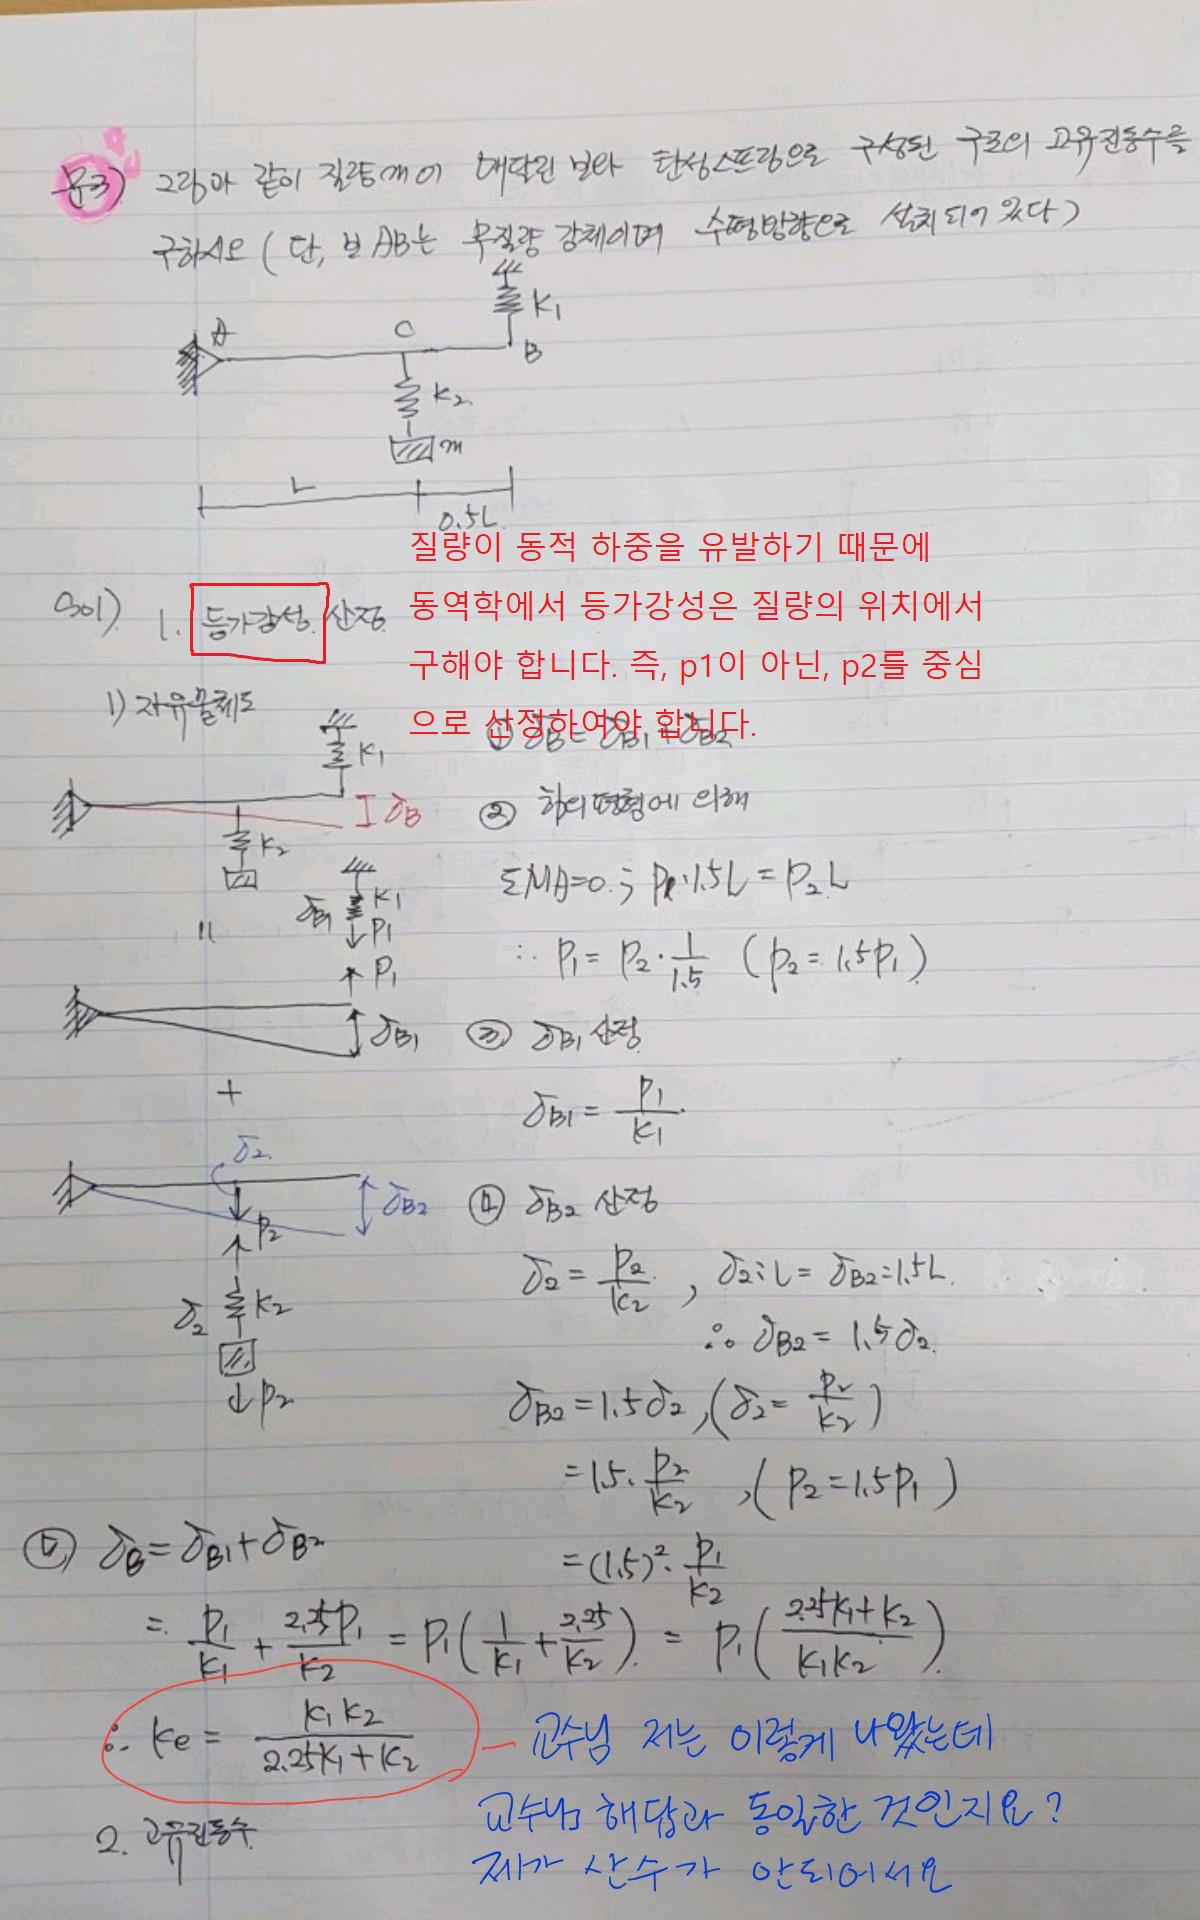 문3) 그림과 같이 질량 m이 매달린 보와 탄성스프링으로 구성된 구조의 고유진동수를
구하시오 ( 단, 보 AB는 무질량 강체이며 수평방향으로 설치되어 있다)
K1
A
C
B
K2
m
L
0.5L
질량이 동적 하중을 유발하기 때문에
동역학에서 등가강성은 질량의 위치에서
구해야 합니다. 즉, p1이 아닌, p2를 중심
으로 산정하여야 합니다.
Sol) 1. 등가강성 산정
1) 자유물체도
① δB = δB1 + δB2
K1
δB
K2
② 힘의 평형에 의해
ΣMA=0 ; P1·1.5L = P2L
δB1
K1
P1
P1
∴ P1 = P2 · 1/1.5 ( P2 = 1.5P1 )
δB1
③ δB1 산정
δB1 = P1/K1
+
δ2
δB2
P2
④ δB2 산정
δ2 = P2/K2 , δ2 : L = δB2 : 1.5L
∴ δB2 = 1.5δ2
δ2
K2
P2
δB2 = 1.5δ2 , (δ2 = P2/K2)
= 1.5 · P2/K2 , ( P2 = 1.5P1 )
= (1.5)² · P1/K2
⑤ δB = δB1 + δB2
= P1/K1 + 2.25P1/K2 = P1 ( 1/K1 + 2.25/K2 ) = P1 ( 2.25K1 + K2 / K1K2 )
∴ Ke = K1 K2 / 2.25K1 + K2
교수님 저는 이렇게 나왔는데
교수님 해답과 동일한 것인지요?
제가 산수가 안되어서요
2. 고유진동수